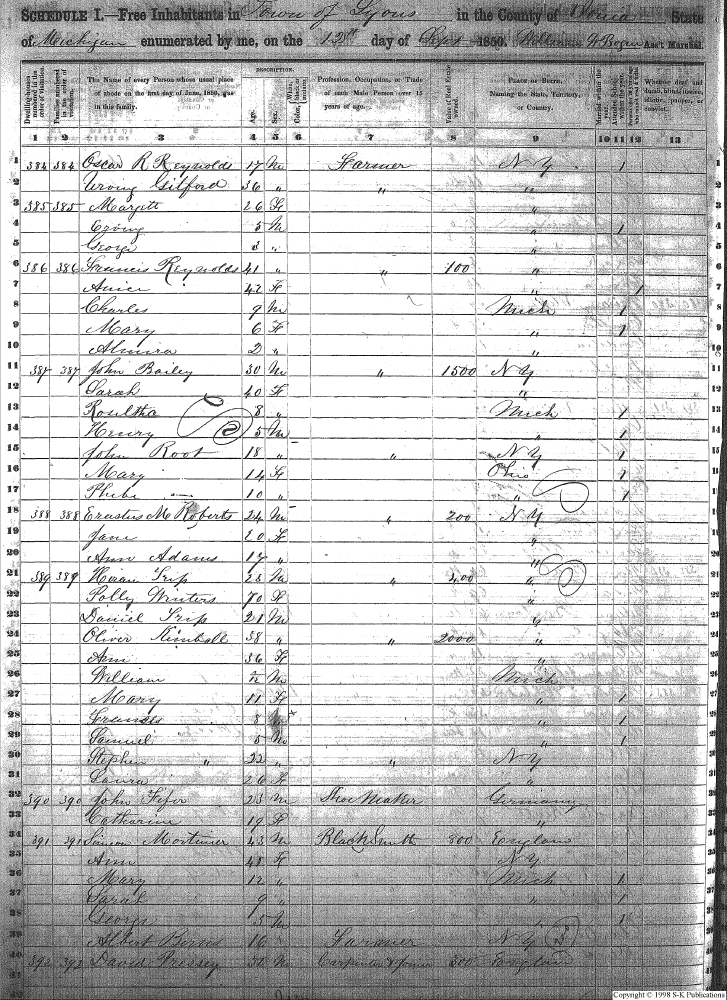 SCHEDULE I.—Free Inhabitants in Town of Lyons in the County of Ionia State
of Michigan enumerated by me, on the 12th day of Sept 1850. Ass't Marshal.
DESCRIPTION.
Dwelling-houses numbered in the order of visitation. Families numbered in the order of visitation. The Name of every Person whose usual place of abode on the first day of June, 1850, was in this family. Age. Sex. Color, Profession, Occupation, or Trade of each Male Person over 15 years of age. Value of Real Estate owned. Place of Birth. Naming the State, Territory, or Country. Married within the year. Attended School within the year. Whether deaf and dumb, blind, insane, idiotic, pauper, or convict.
1 2 3 4 5 6 7 8 9 10 11 12 13
1 384 384 Oscar R Reynolds 17 M Farmer N Y 1 1
2 Gilford 36 " " " 2
3 385 385 Margett 26 F " 3
4 5 M " 1 4
5 George 3 " " 5
6 386 386 Francis Reynolds 41 " " 100 " 6
7 42 F " 1 7
8 Charles 9 M Mich 1 8
9 Mary 6 F " 1 9
10 Almira 2 " " 10
11 387 387 John Bailey 30 M " 1500 N Y 11
12 Sarah 40 F " 12
13 8 " Mich 1 13
14 Henry 5 M " 1 14
15 John Root 18 " " N Y 1 15
16 Mary 14 F Ohio 1 16
17 Phebe " 10 " " 1 17
18 388 388 Erastus M Roberts 24 M " 200 N Y 18
19 Jane 20 F " 19
20 Ann Adams 17 " " 20
21 389 389 Hiram Trip 28 M " 400 " 21
22 Polly Winters 70 F " 22
23 Daniel Trip 21 M " 23
24 Oliver Kimball 38 " " 2000 " 24
25 Ann 36 F " 25
26 William M Mich 26
27 Mary 11 F " 1 27
28 Francis 8 M " 1 28
29 Samuel 5 M " 1 29
30 Stephen " 22 " " N Y 30
31 Laura 26 F " 31
32 390 390 John Fifer 23 M Shoe Maker Germany 32
33 Catharine 19 F " 33
34 391 391 Simon Mortimer 43 M BlackSmith 800 England 34
35 Ann 41 F N Y 35
36 Mary 12 " Mich 1 36
37 Sarah 9 " " 1 37
38 George 5 M " 1 38
39 Albert 16 " Farmer N Y 39
40 392 393 David Pressey M Carpenter & farmer 300 England 40
Copyright © 1998 S-K Publications